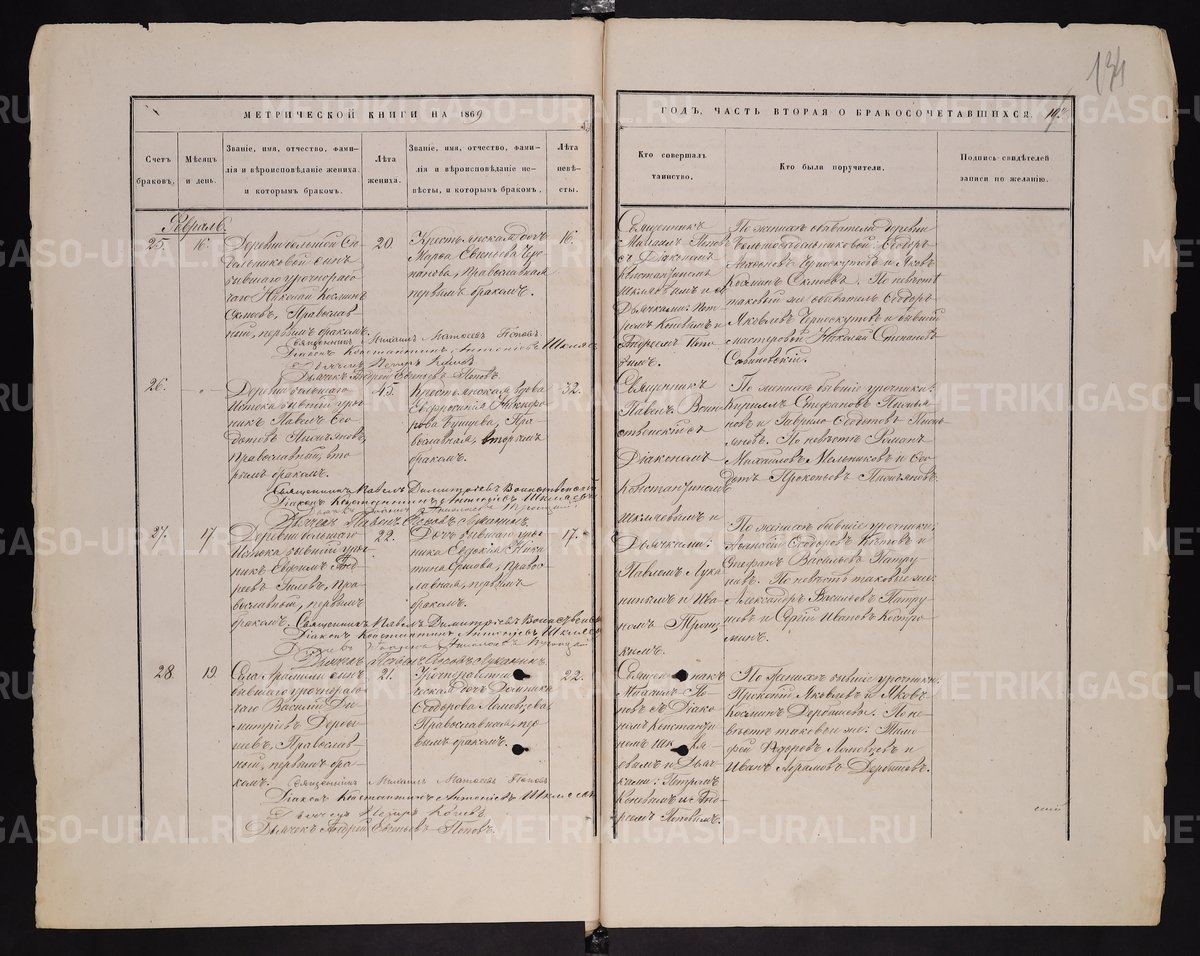 134
МЕТРИЧЕСКОЙ КНИГИ НА 1869
ГОДЪ, ЧАСТЬ ВТОРАЯ О БРАКОСОЧЕТАВШИХСЯ.
Счетъ браковъ.
Мѣсяцъ и день.
Званіе, имя, отчество, фами-
лія и вѣроисповѣданіе жениха
и которымъ бракомъ.
Лѣта жениха.
Званіе, имя, отчество, фами-
лія и вѣроисповѣданіе не-
вѣсты, и которымъ бракомъ,
Лѣта невѣ-
сты.
Кто совершалъ
таинство.
Кто были поручители.
Подпись свидѣтелей
записи по желанію.
Февраль.
25.
16.
Деревни большой Се-
дельниковой сынъ
бывшаго урочнорабо-
чаго Николай Козминъ
Православ-
ный, первымъ бракомъ.
20
Крестьянская дочь
Марѳа Евгеньева Чере-
панова, Православная
первымъ бракомъ.
16.
Священникъ
Михаилъ Поповъ
съ Діакономъ
Константиномъ
Шкляевымъ и съ
Дьячками: Пет-
ромъ Коневымъ и
Андреемъ Попо-
вымъ.
По женихѣ обыватели деревни
Большеседельниковой: Ѳедоръ
Черноскутовъ и Яковъ
Козминъ По невѣстѣ
таковый же обыватель Ѳеодоръ
Яковлевъ Черноскутовъ и бывшій
мастеровой Николай Степановъ
Священникъ Михаилъ Матѳеевъ Поповъ
Діаконъ Константинъ Антоніевъ Шкляевъ
Дьячекъ Петръ Коневъ
Дьячекъ Андрей Евгеньевъ Поповъ.
26.
Деревни большаго
Истока бывшій уроч-
никъ Павелъ Ѳео-
дотовъ Письяновъ,
Православный, вто-
рымъ бракомъ.
45.
Крестьянская вдова
Евфросинія Никифо-
рова Пра-
вославная, вторымъ
бракомъ.
32.
Священникъ
Павелъ Воин-
ственскій съ
Діакономъ
Константиномъ
Шкляевымъ и
Дьячками:
Павломъ Лука-
нинымъ и Ива-
номъ Троиц-
кимъ.
По женихѣ бывшіе урочники:
Кириллъ Стефановъ Письья-
новъ и Гаврило Ѳедотовъ Пись-
яновъ. По невѣстѣ Романъ
Михаиловъ Мельниковъ и Ѳео-
дотъ Прокопьевъ Письяновъ.
Священникъ Павелъ Димитріевъ Воинственскій
Діаконъ Константинъ Антоніевъ Шкляевъ
Троицкій
Дьячекъ Павелъ Луканинъ.
27.
17
Деревни большаго
Истока бывшій уроч-
никъ Евфимъ Анд-
реевъ Пра-
вославный, первымъ
бракомъ.
22.
Дочь бывшаго уроч-
ника Евдокія Ники-
тина Право-
славная, первымъ
бракомъ.
17.
По женихѣ бывшіе урочники,
Ѳеодоровъ и
Стефанъ Васильевъ Патру-
шевъ. По невѣстѣ таковые же:
Александръ Васильевъ Патру-
шевъ и Сергій Ивановъ Костро-
минъ.
Священникъ Павелъ Димитріевъ Воинственскій
Діаконъ Константинъ Антоніевъ Шкляевъ
Троицкій
Дьячекъ Павелъ Луканинъ.
28.
19
Села Арамили сынъ
бывшаго урочнорабо-
чаго Василій Ди-
митріевъ Дербы-
шевъ, Православ-
ный, первымъ бра-
комъ.
21.
дочь Домника
Ѳеодорова Ломовцева,
Православная, пер-
вымъ бракомъ.
22.
Священникъ
Михаилъ По-
повъ съ Діако-
номъ Константи-
номъ Шкля-
евымъ и Дьяч-
ками: Петромъ
Коневымъ и Анд-
реемъ Поповымъ.
По женихѣ бывшіе урочники:
Прокопій Яковлевъ и Яковъ
Козминъ Дербышевы. По не-
вѣстѣ таковые же: Тимо-
фей Ѳедоровъ Ломовцевъ и
Иванъ Абрамовъ Дербышевъ.
Священникъ Михаилъ Матѳеевъ Поповъ
Діаконъ Константинъ Антоніевъ Шкляевъ
Дьячекъ Петръ Коневъ
Дьячекъ Андрей Евгеньевъ Поповъ.
METRIKI.GASO-URAL.RU